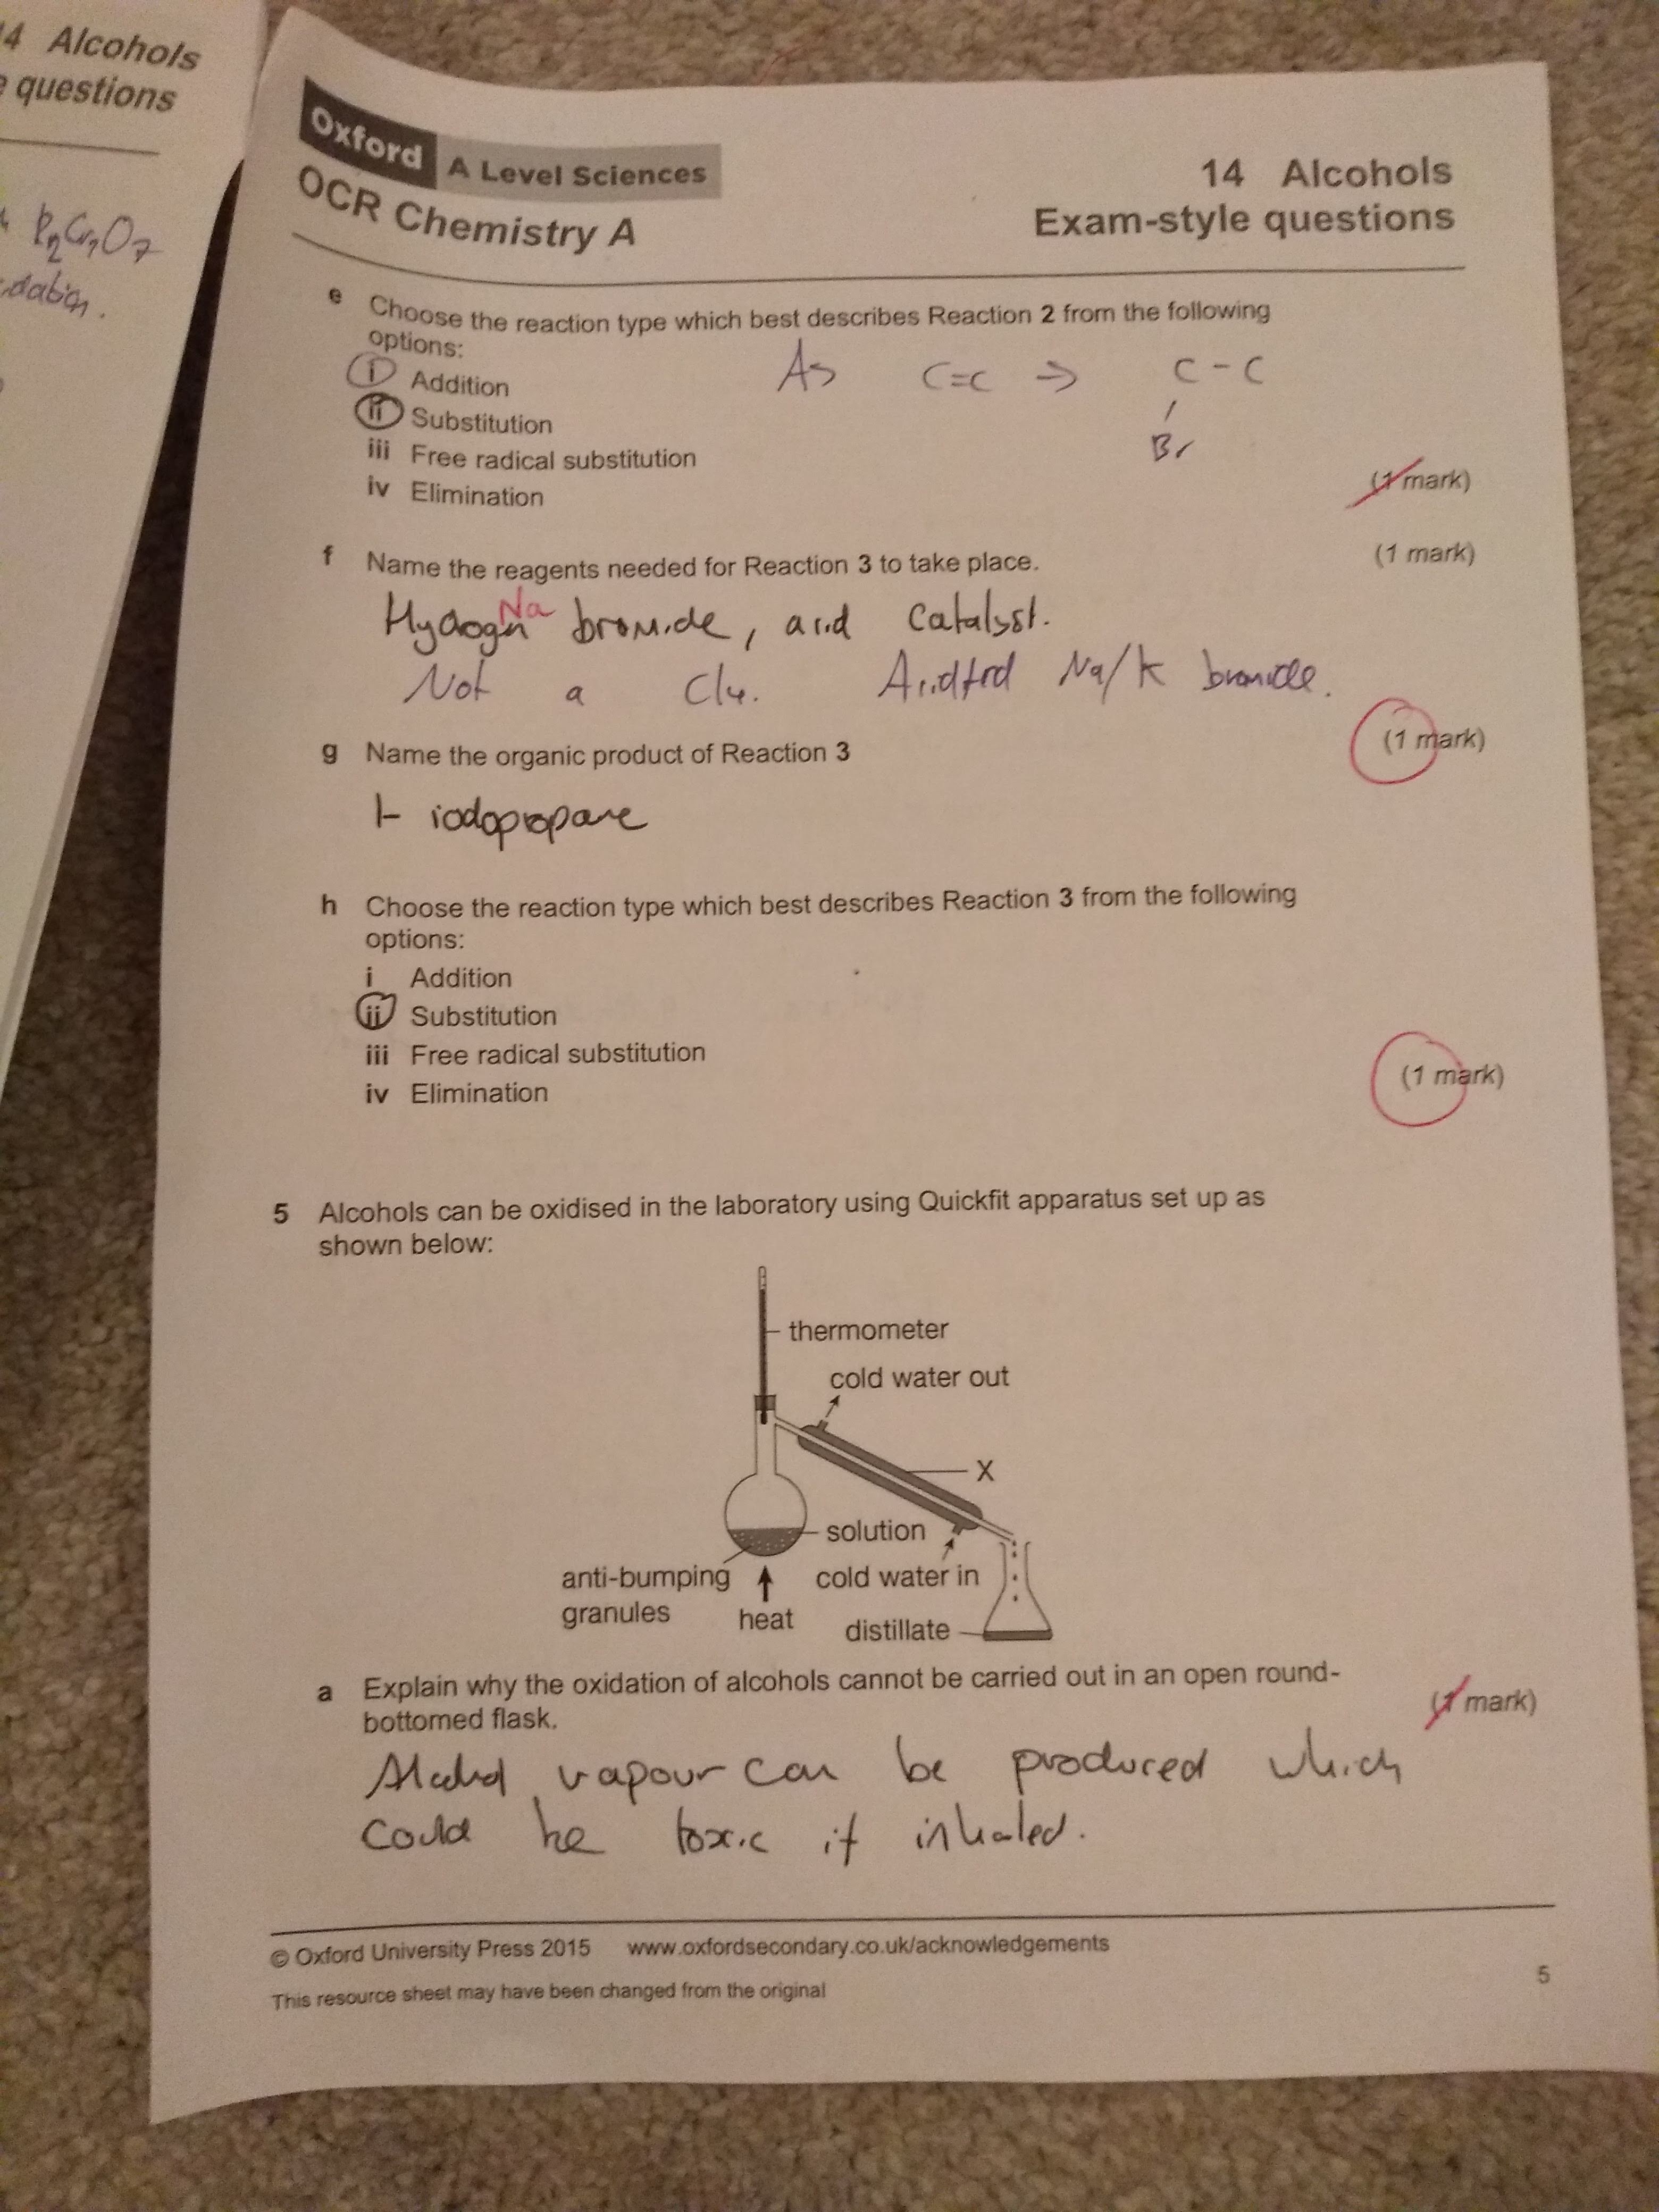 4 Alcohols
questions
K2Cr2O7
Oxford A Level Sciences
OCR Chemistry A
14 Alcohols
Exam-style questions
e Choose the reaction type which best describes Reaction 2 from the following
options:
i Addition
ii Substitution
iii Free radical substitution
iv Elimination
As C=C → C - C
Br
(1 mark)
f Name the reagents needed for Reaction 3 to take place.
(1 mark)
Na
Hydrogen bromide, acid catalyst.
Not a Na/K bromide.
g Name the organic product of Reaction 3
(1 mark)
1- iodopropane
h Choose the reaction type which best describes Reaction 3 from the following
options:
i Addition
ii Substitution
iii Free radical substitution
iv Elimination
(1 mark)
5 Alcohols can be oxidised in the laboratory using Quickfit apparatus set up as
shown below:
thermometer
cold water out
X
solution
anti-bumping
granules
heat
cold water in
distillate
a Explain why the oxidation of alcohols cannot be carried out in an open round-
bottomed flask.
(1 mark)
Alcohol vapour can be produced which
could be toxic if inhaled.
© Oxford University Press 2015 www.oxfordsecondary.co.uk/acknowledgements
This resource sheet may have been changed from the original
5